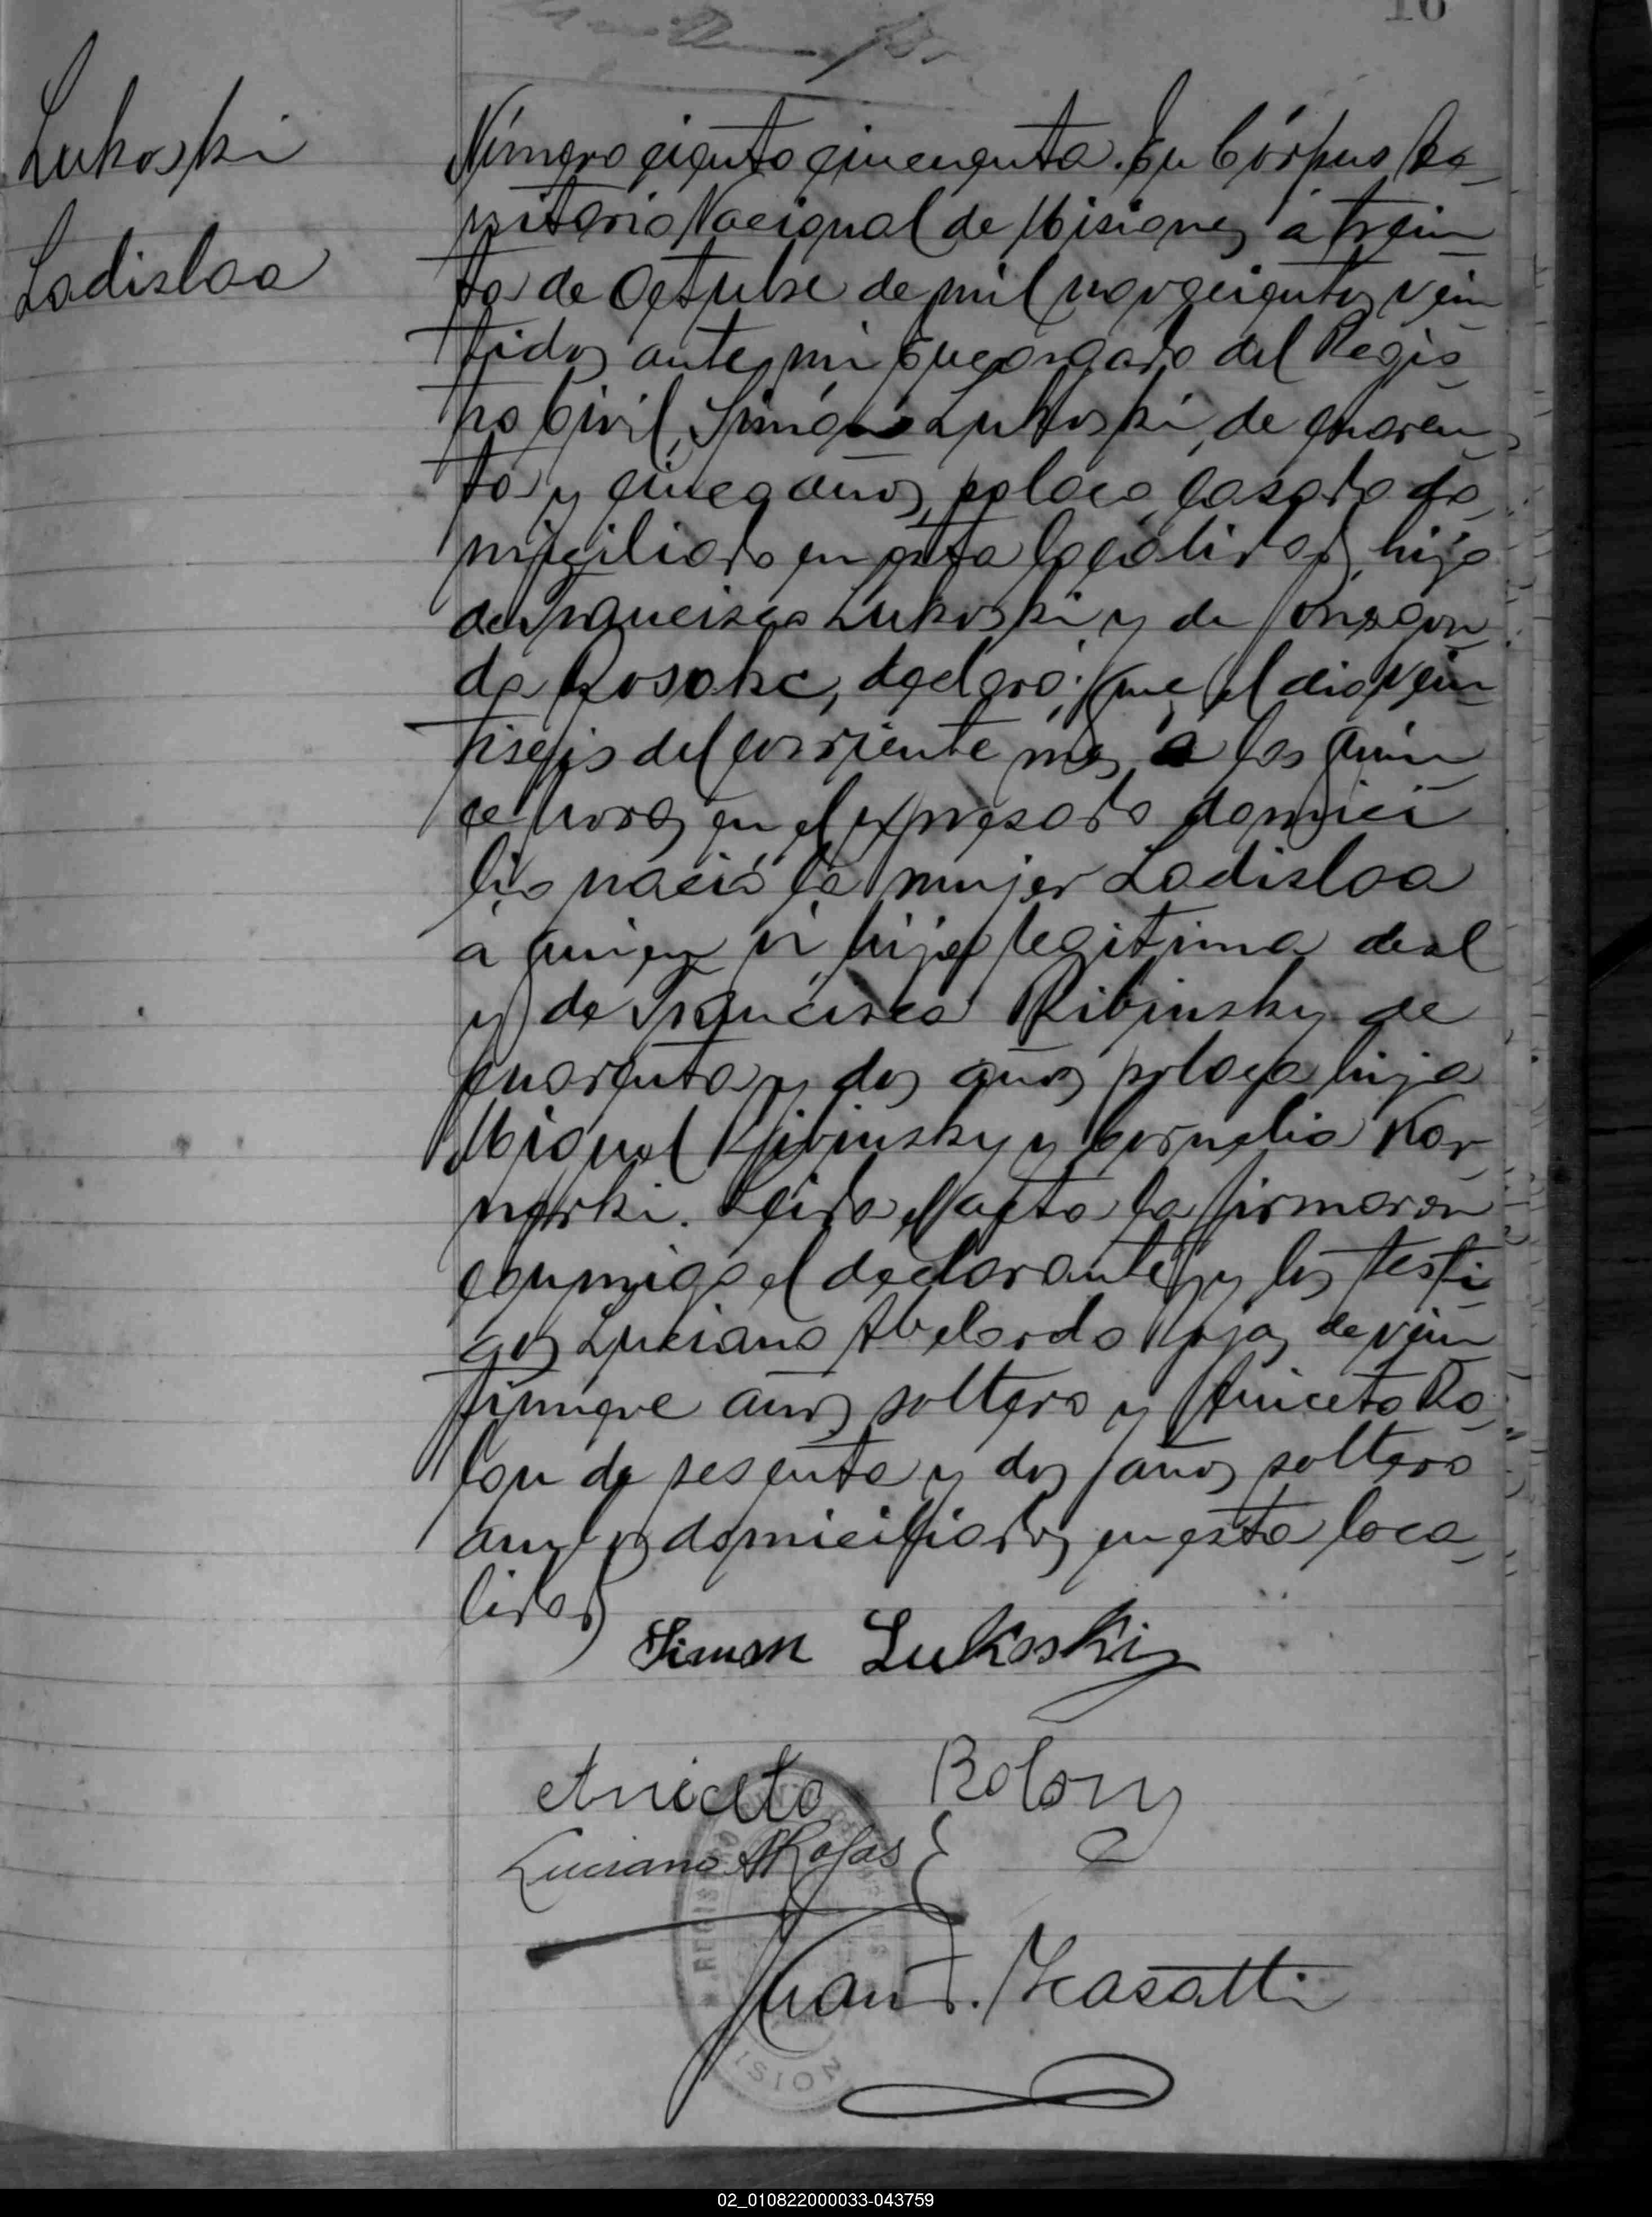 16
Lukoski
Ladislaa
Número ciento cincuenta. En Córpus Te-
rritorio Nacional de Misiones á trein-
ta de Octubre de mil novecientos vein-
tidos ante mi Encargado del Regis-
tro Civil, Simón Lukoski, de cuaren-
ta y cinco años, polaco, casado do-
miciliado en esta localidad, hijo
de Francisco Lukoski y de
da Rosoke, declaró: Que el dia vein-
tiseis del corriente mes á las quin-
ce horas en el expresado domici-
lio nació la mujer Ladislaa
á quien vi hija legitima de el
y de Francisca Ribinsky de
cuarenta y dos años polaca hija
Miguel Ribinsky y Cornelia Kor-
narki. Leida el acta la firmaron
conmigo el declarante y los testi-
gos Luciano Abelardo Rojas de vein-
tinueve años soltero y Aniceto Ro-
lon de sesenta y dos años soltero
ambos domiciliados en esta loca-
lidad
Simon Lukoski
Aniceto Rolon
Luciano A Rojas
Juan F.
REGISTRO